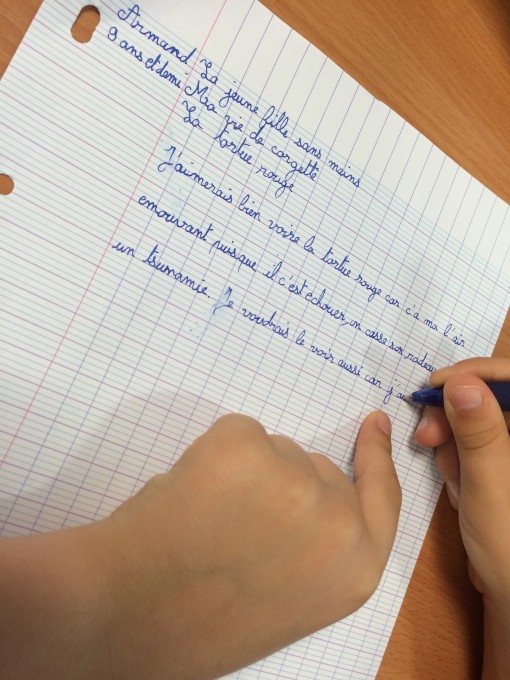 Armand La jeune fille sans mains
9 ans et demi Ma vie de corgette
La tortue rouge
J'aimerais bien voire la tortue rouge car c'a ma l'air
emouvant puisque il c'est echouer, on casse son radeau
un tsunamie. Je voudrais le voir aussi car j'au